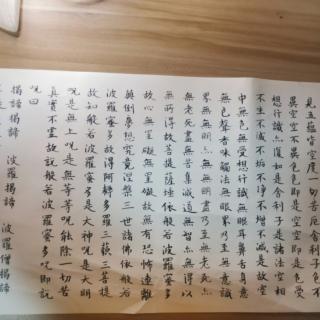 見五蘊皆空度一切苦厄舍利子色不
異空空不異色色即是空空即是色受
想行識亦復如是舍利子是諸法空相
不生不滅不垢不淨不增不減是故空
中無色無受想行識無眼耳鼻舌身意
無色聲香味觸法無眼界乃至無意識
界無無明亦無無明盡乃至無老死亦
無老死盡無苦集滅道無智亦無得以
無所得故菩提薩埵依般若波羅蜜多
故心無罣礙無罣礙故無有恐怖遠離
顛倒夢想究竟涅槃三世諸佛依般若
波羅蜜多故得阿耨多羅三藐三菩提
故知般若波羅蜜多是大神咒是大明
咒是無上咒是無等等咒能除一切苦
真實不虛故說般若波羅蜜多咒即說
咒曰
揭諦揭諦 波羅揭諦 波羅僧揭諦